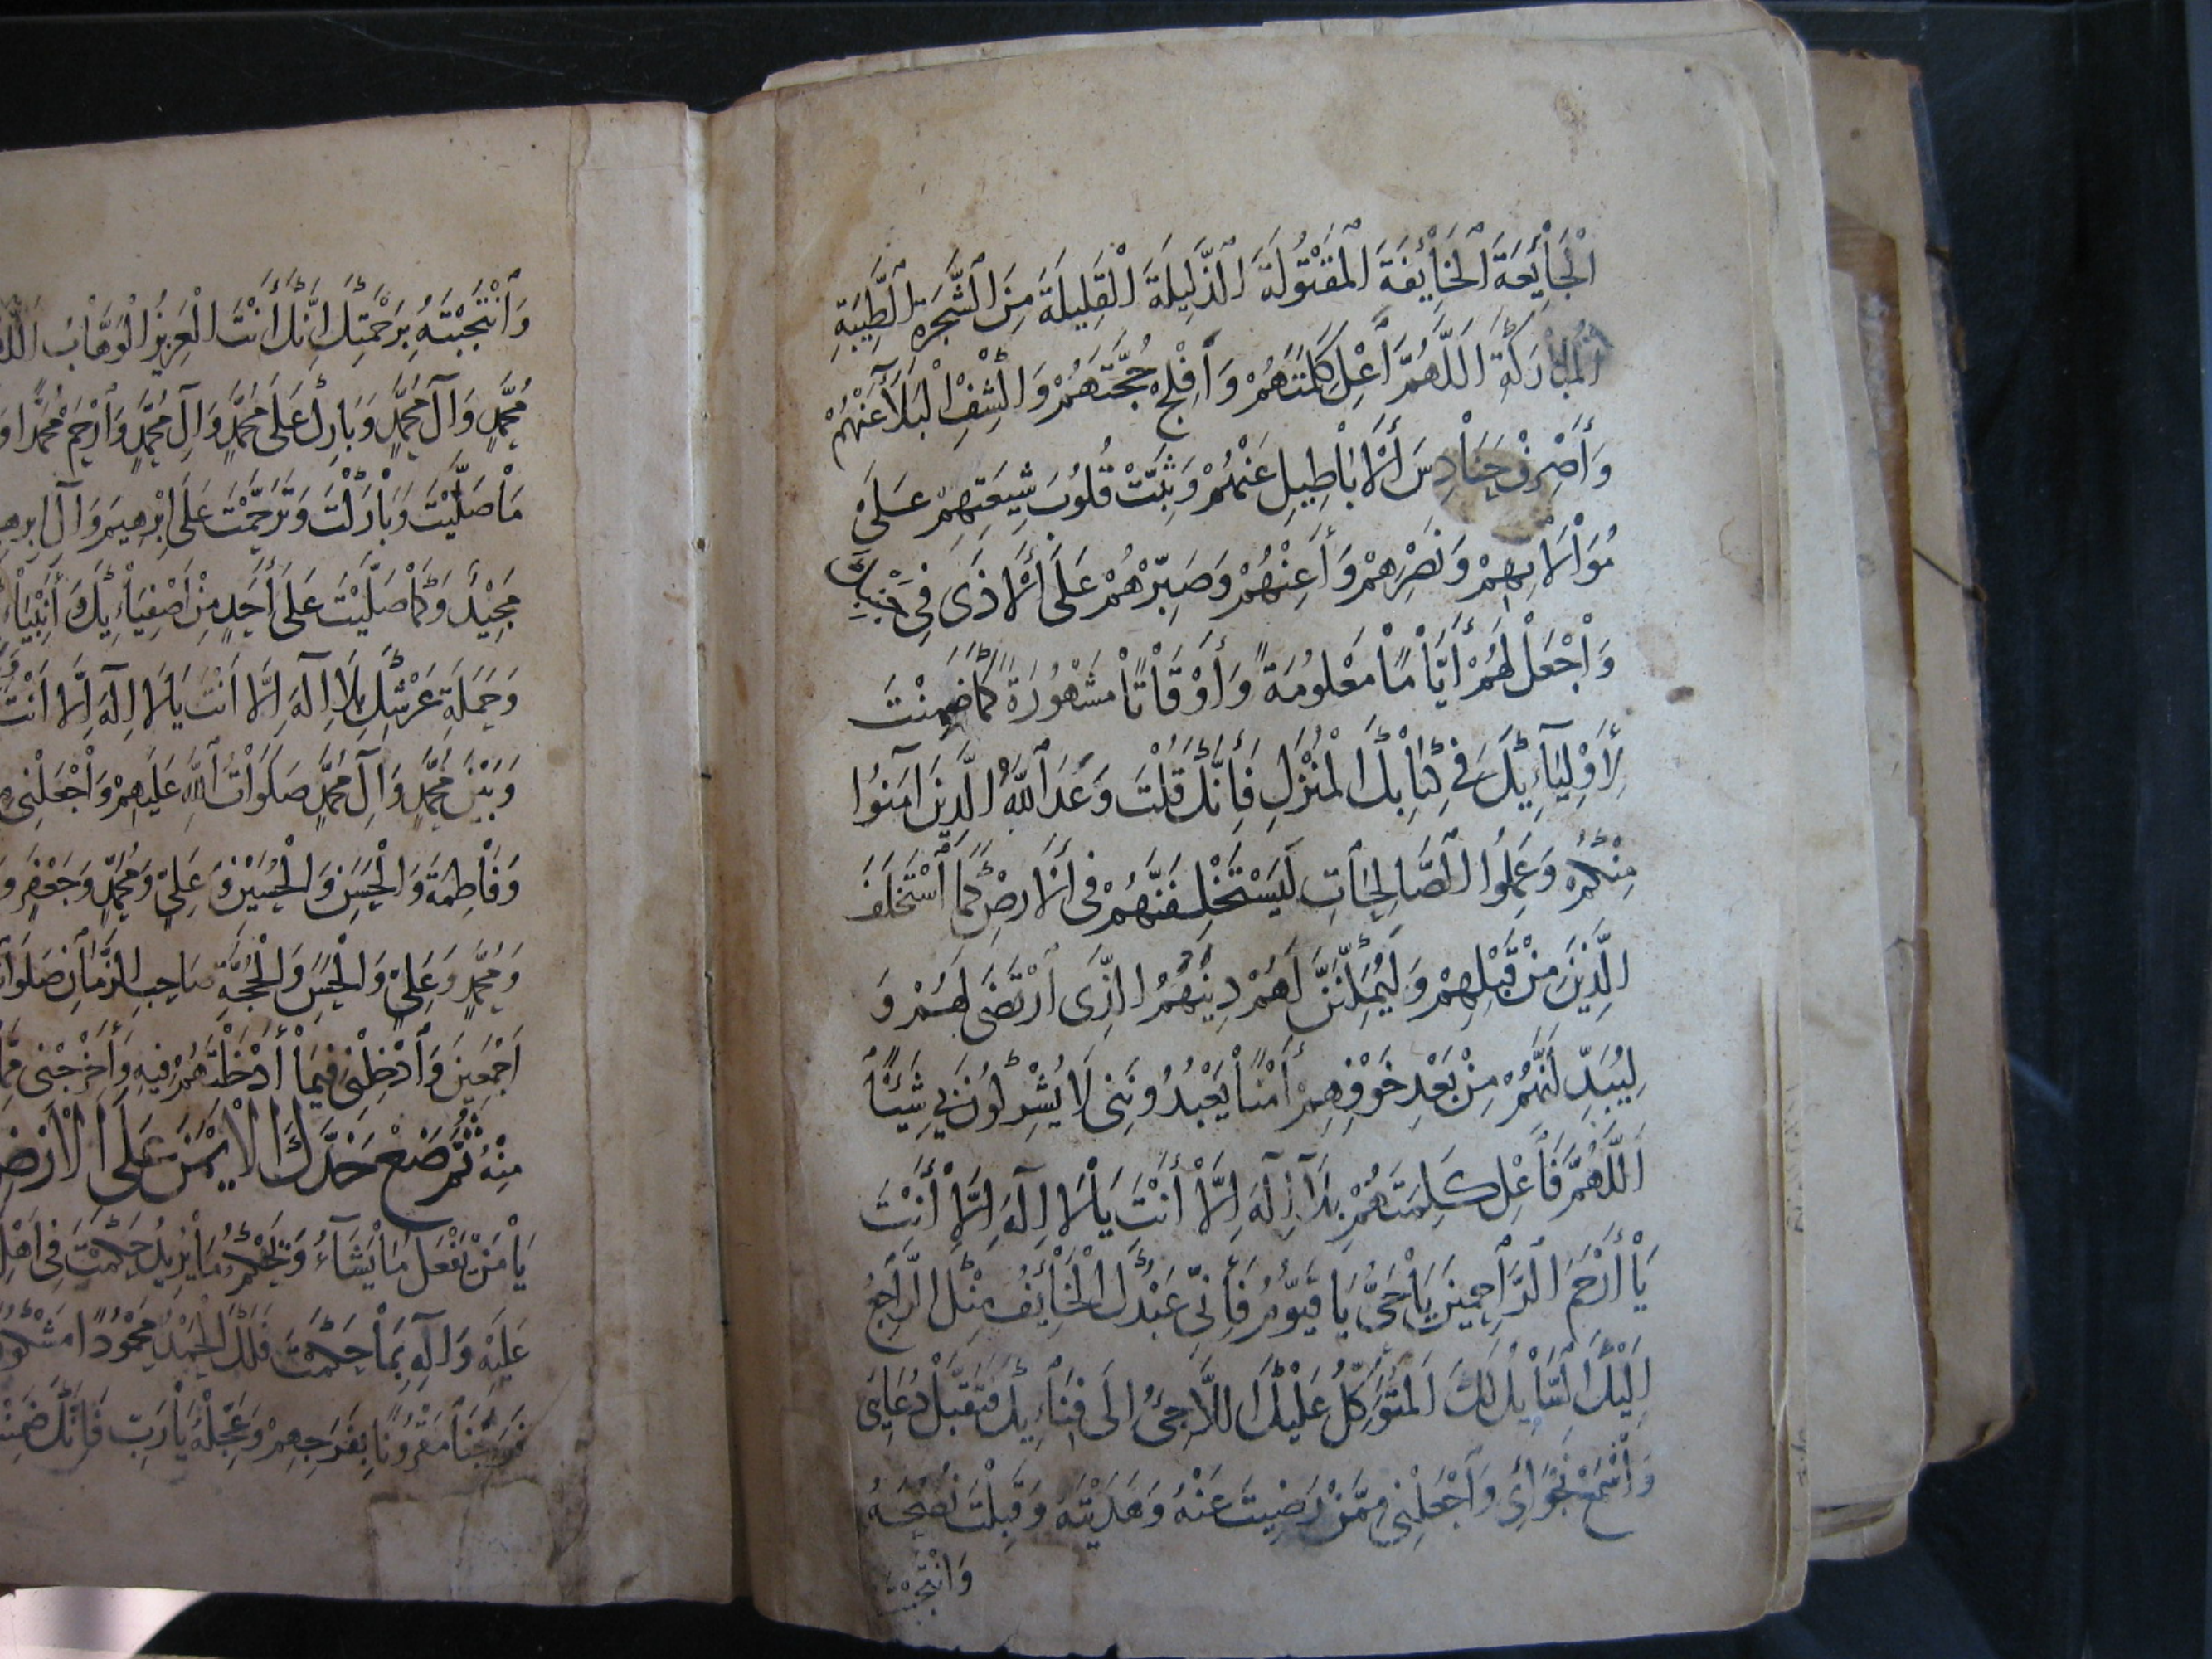 الْجَائِعَةَ الْخَائِفَةَ الْمَقْتُولَةَ الذَّلِيلَةَ الْقَلِيلَةَ مِنَ الشَّجَرَةِ الطَّيِّبَةِ
الْمُبَارَكَةِ اَللَّهُمَّ أَعْلِ كَلِمَتَهُمْ وَأَفْلِحْ حُجَّتَهُمْ وَاكْشِفِ الْبَلَاءَ عَنْهُمْ
وَأَصْرِفْ حَنَادِسَ أَلْأَبَاطِيلِ عَنْهُمْ وَثَبِّتْ قُلُوبَ شِيعَتِهِمْ عَلَى
مُوَالَاتِهِمْ وَنَصْرِهِمْ وَأَعِنْهُمْ وَصَبِّرْهُمْ عَلَى أَلْأَذَى فِي جَنْبِكَ
وَاجْعَلْ لَهُمْ أَيَّامًا مَعْلُومَةً وَأَوْقَاتًا مَشْهُورَةً كَمَا ضَمِنْتَ
لِأَوْلِيَآئِكَ فِي كِتَابِكَ الْمُنْزَلِ فَإِنَّكَ قُلْتَ وَعَدَ اللَّهُ الَّذِينَ آمَنُوا
مِنْكُمْ وَعَمِلُوا الصَّالِحَاتِ لَيَسْتَخْلِفَنَّهُمْ فِي أَلْأَرْضِ كَمَا اسْتَخْلَفَ
الَّذِينَ مِنْ قَبْلِهِمْ وَلَيُمَكِّنَنَّ لَهُمْ دِينَهُمُ الَّذِي ارْتَضَى لَهُمْ وَ
لِيُبَدِّلَنَّهُمْ مِنْ بَعْدِ خَوْفِهِمْ أَمْنًا يَعْبُدُونَنِي لَا يُشْرِكُونَ بِي شَيْئًا
اَللَّهُمَّ فَأَعْلِ كَلِمَتَهُمْ يَا لَآ اِلَهَ اِلَّا أَنْتَ يَا لَا اِلَهَ اِلَّا أَنْتَ
يَا أَرْحَمَ الرَّاحِمِينَ يَا حَيُّ يَا قَيُّومُ فَإِنِّي عَبْدُكَ الْخَائِفُ مِنْكَ الرَّاجِعُ
اِلَيْكَ السَّائِلُ لَكَ الْمُتَوَكِّلُ عَلَيْكَ اللَّاجِئُ اِلَى فِنَائِكَ فَتَقَبَّلْ دُعَائِي
وَاسْمَعْ نَجْوَايَ وَاجْعَلْنِي مِمَّنْ رَضِيتَ عَنْهُ وَهَدَيْتَهُ وَقَبِلْتَ نُصْحَهُ
وَانْتَجَبْتَ
وَانْتَجَبْتَهُ بِرَحْمَتِكَ اِنَّكَ أَنْتَ الْعَزِيزُ الْوَهَّابُ
مُحَمَّدٍ وَآلِ مُحَمَّدٍ وَبَارِكْ عَلَى مُحَمَّدٍ وَآلِ مُحَمَّدٍ وَارْحَمْ مُحَمَّدًا
مَا صَلَّيْتَ وَبَارَكْتَ وَتَرَحَّمْتَ عَلَى اِبْرَهِيمَ وَآلِ
مَجِيدٌ وَكَمَا صَلَّيْتَ عَلَى أَحَدٍ مِنْ أَصْفِيَائِكَ
وَحَمَلَةِ عَرْشِكَ بِلَا اِلَهَ اِلَّا اَنْتَ يَا لَا اِلَهَ اِلَّا اَنْتَ
وَبَيْنَ مُحَمَّدٍ وَآلِ مُحَمَّدٍ صَلَوَاتُ اللَّهِ عَلَيْهِمْ وَاجْعَلْنِي
وَفَاطِمَةَ وَالْحَسَنِ وَالْحُسَيْنِ وَ عَلِيٍّ وَمُحَمَّدٍ وَجَعْفَرٍ
وَمُحَمَّدٍ وَعَلِيٍّ وَالْحَسَنِ وَالْحُجَّةِ صَاحِبِ الزَّمَانِ
اَجْمَعِينَ وَأَدْخِلْنِي فِيمَا أَدْخَلْتَهُمْ فِيهِ وَأَخْرِجْنِي
مِنْهُ ثُمَّ ضَعْ خَدَّكَ الْأَيْمَنَ عَلَى الْأَرْضِ
يَا مَنْ يَفْعَلُ مَا يَشَاءُ وَيَحْكُمُ مَا يُرِيدُ حَكَمْتَ فِي
عَلَيْهِ وَآلِهِ بِمَا حَكَمْتَ فَلَكَ الْحَمْدُ مَحْمُودًا
فَرَجَنَا مَقْرُونًا بِفَرَجِهِمْ وَعَجِّلْهُ يَا رَبِّ فَإِنَّكَ